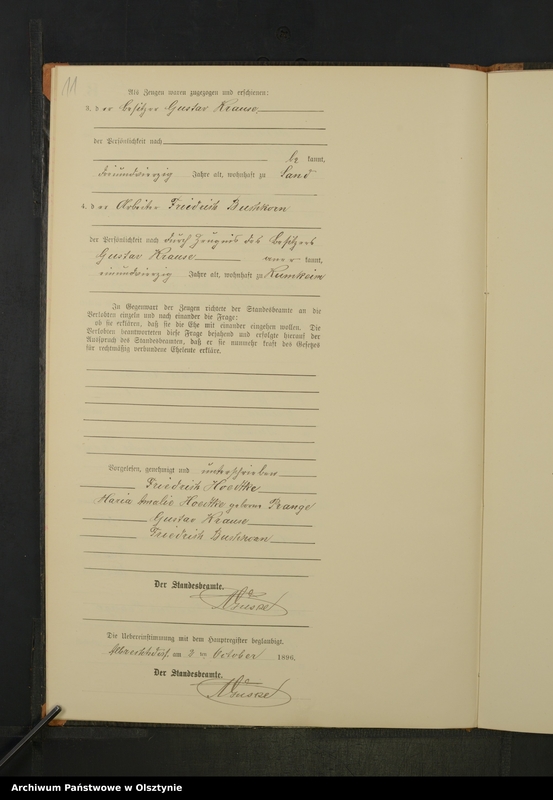 11
Als Zeugen waren zugezogen und erschienen:
3. der Besitzer Gustav Krause
der Persönlichkeit nach
be kannt,
dreiundvierzig Jahre alt, wohnhaft zu Sand
4. der Arbeiter Friedrich Buchhorn
der Persönlichkeit nach durch Zeugnis des Besitzers
Gustav Krause aner kannt,
einundvierzig Jahre alt, wohnhaft zu Kumkeim
In Gegenwart der Zeugen richtete der Standesbeamte an die
Verlobten einzeln und nach einander die Frage:
ob sie erklären, daß sie die Ehe mit einander eingehen wollen. Die
Verlobten beantworteten diese Frage bejahend und erfolgte hierauf der
Ausspruch des Standesbeamten, daß er sie nunmehr kraft des Gesetzes
für rechtmäßig verbundene Eheleute erkläre.
Vorgelesen, genehmigt und unterschrieben
Friedrich Hoedtke
Maria Amalie Hoedtke geborne Prange
Gustav Krause
Friedrich Buchhorn
Der Standesbeamte.
Die Uebereinstimmung mit dem Hauptregister beglaubigt.
Albrechtsdorf, am ten October 1896.
Der Standesbeamte.
Archiwum Państwowe w Olsztynie